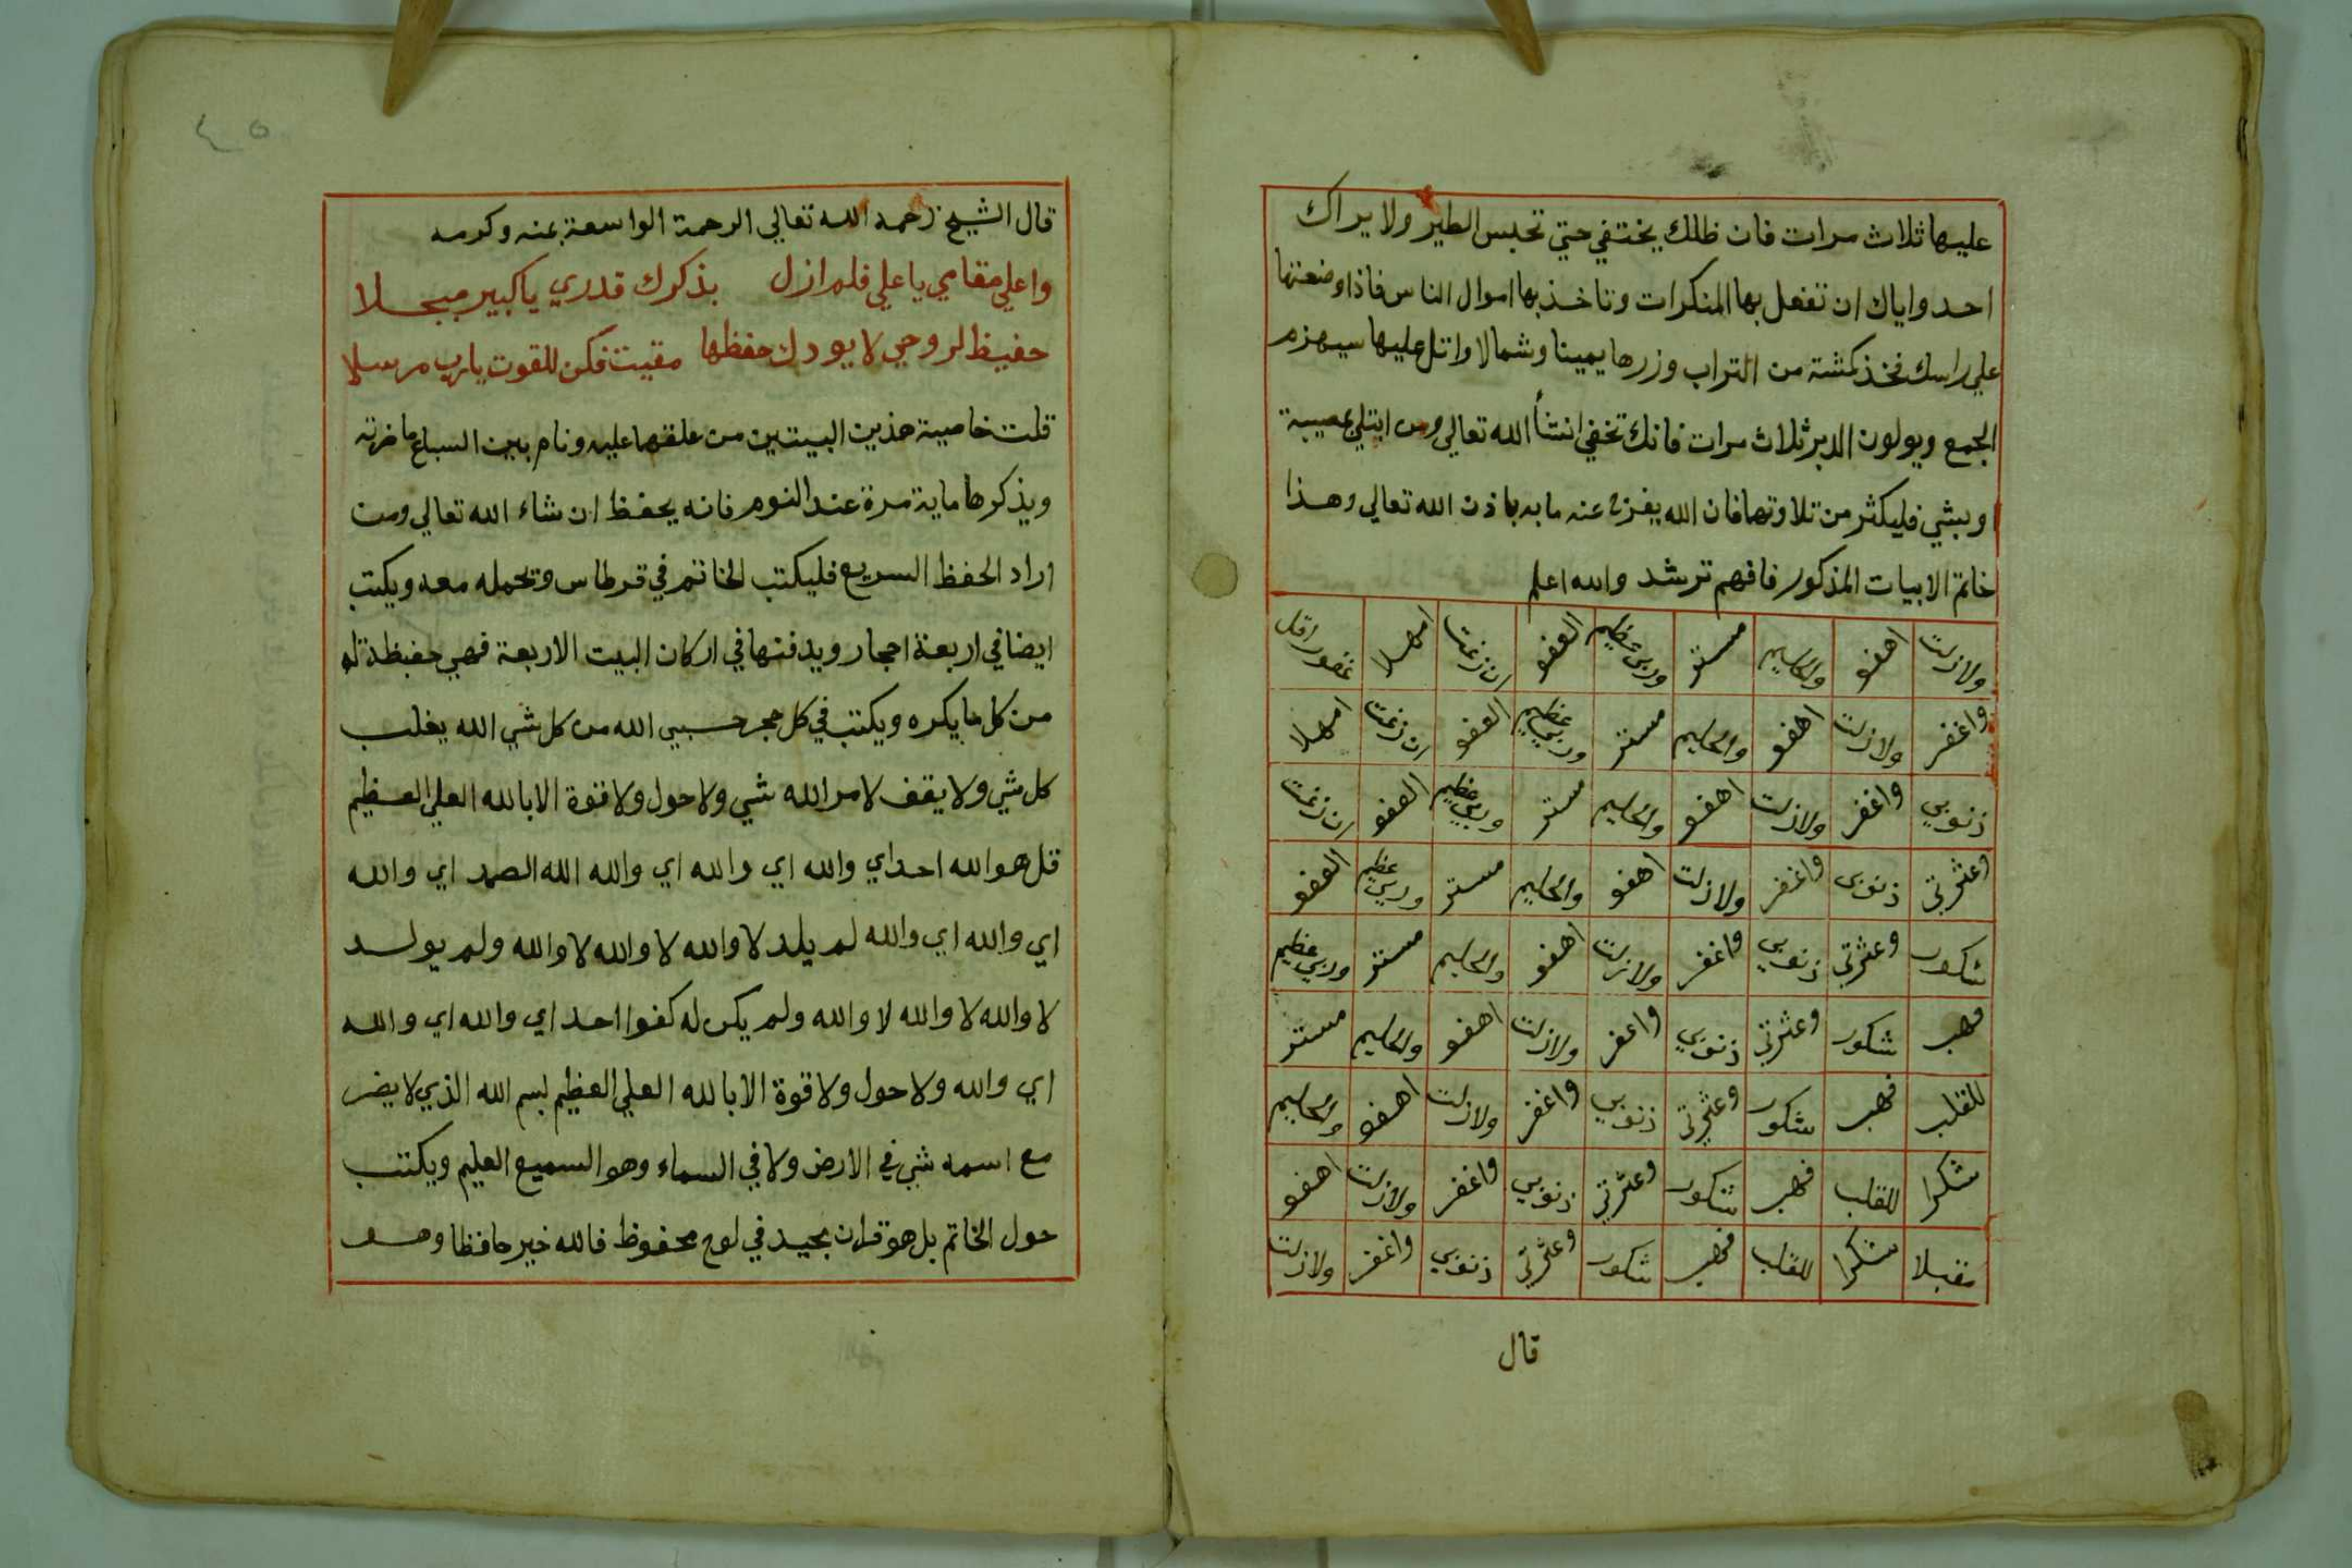 عليها ثلاث مرات فان ظلك يختفي حتي تحبس الطير ولا يراك
احد واياك ان تفعل بها المنكرات وتاخذ بها اموال الناس فاذا وضعتها
علي راسك فخذ كمشة من التراب وزرها يمينا وشمالا واتل عليها سيهزم
الجمع ويولون الدبر ثلاث مرات فانك تخفي انشأ الله تعالي ومن ابتلي بمصيبة
وبشي فليكثر من تلاوتها فان الله يفرج عنه ما به باذن الله تعالي وهذا
خاتم الابيات المذكور فافهم ترشد والله اعلم
ولازلت اهفو والحليم مستر وربي عظيم العفو ان زغت امهلا
واغفر ولازلت اهفو والحليم مستر وربي عظيم العفو ان زغت امهلا
ذنوبي واغفر ولازلت اهفو والحليم مستر وربي عظيم العفو ان زغت
وعثرتي ذنوبي واغفر ولازلت اهفو والحليم مستر وربي عظيم العفو
شكور وعثرتي ذنوبي واغفر ولازلت اهفو والحليم مستر وربي عظيم
فهب شكور وعثرتي ذنوبي واغفر ولازلت اهفو والحليم مستر
للقلب فهب شكور وعثرتي ذنوبي واغفر ولازلت اهفو والحليم
شكرا للقلب فهب شكور وعثرتي ذنوبي واغفر ولازلت اهفو
مقبلا شكرا للقلب فهب شكور وعثرتي ذنوبي واغفر ولازلت
قال
٤٥
قال الشيخ رحمه الله تعالي الرحمة الواسعة بمنه وكرمه
واعلي مقامي يا علي فلم ازل بذكرك قدري يا كبير مبجلا
حفيظ لروحي لا يودك حفظها مقيت فكن للقوت يا رب مرسلا
قلت خاصية هذين البيتين من علقها عليه ونام بين السباع ما ضرته
ويذكرها ماية مرة عند النوم فانه يحفظ ان شاء الله تعالي ومن
اراد الحفظ السريع فليكتب الخاتم في قرطاس وتحمله معه ويكتب
ايضا في اربعة احجار ويدفنها في اركان البيت الاربعة فهي حفيظة له
من كل ما يكره ويكتب في كل حجر حسبي الله من كل شي الله يغلب
كل شي ولا يقف لامر الله شي ولا حول ولا قوة الا بالله العلي العظيم
قل هو الله احد اي والله اي والله اي والله الله الصمد اي والله
اي والله اي والله لم يلد لا والله لا والله لا والله ولم يولد
لا والله لا والله لا والله ولم يكن له كفوا احد اي والله اي والله
اي والله ولا حول ولا قوة الا بالله العلي العظيم بسم الله الذي لا يضر
مع اسمه شي في الارض ولا في السماء وهو السميع العليم ويكتب
حول الخاتم بل هو قران مجيد في لوح محفوظ فالله خير حافظا وهو